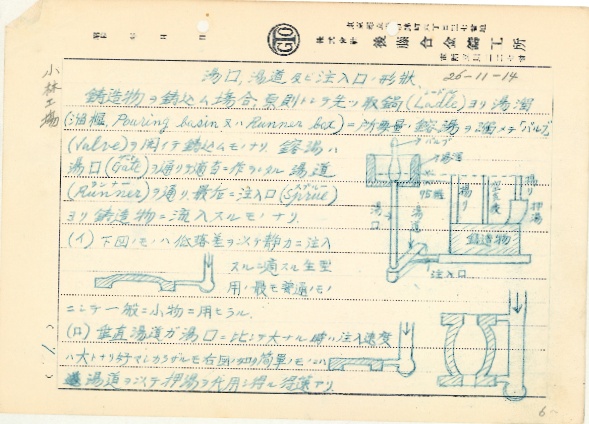 株式会社 後藤合金鋳工所
GTO
小林工場
湯口、湯道及ビ注入口ノ形状 26-11-14
鋳造物ヲ鋳込ム場合、原則トシテ先ヅ取鍋(Ladle)ヨリ湯溜
(湯槽 Pouring basin 又ハ Runner box)ニ所要量ノ鎔湯ヲ溜メテ「バルブ
(Valve)ヲ開イテ鋳込ムモノナリ 鎔湯ハ
湯口(Gate)ヲ通リテ適当ニ作ラレタル 湯道
(Runner)ヲ通リ、最后ニ注入口(Sprue)
ヨリ鋳造物ニ流入スルモノナリ
(イ) 下図ノモノハ低落差ヲ以テ静カニ注入
スルニ適スル
用ノ最モ普通ノモノ
ニシテ一般ニ小物ニ用ヒラル
(ロ) 垂直湯道ガ湯口ニ比シテ大ナル時ハ注入速度
ハ大トナリ好マシカラザルモ右図ノ如ク簡単ノモノハ
湯道ヲ以テ押湯ヲ代用シ得ル
バルブ
湯溜
湯口
湯道
揚リ
揚リ
押湯
鋳造物
注入口
6